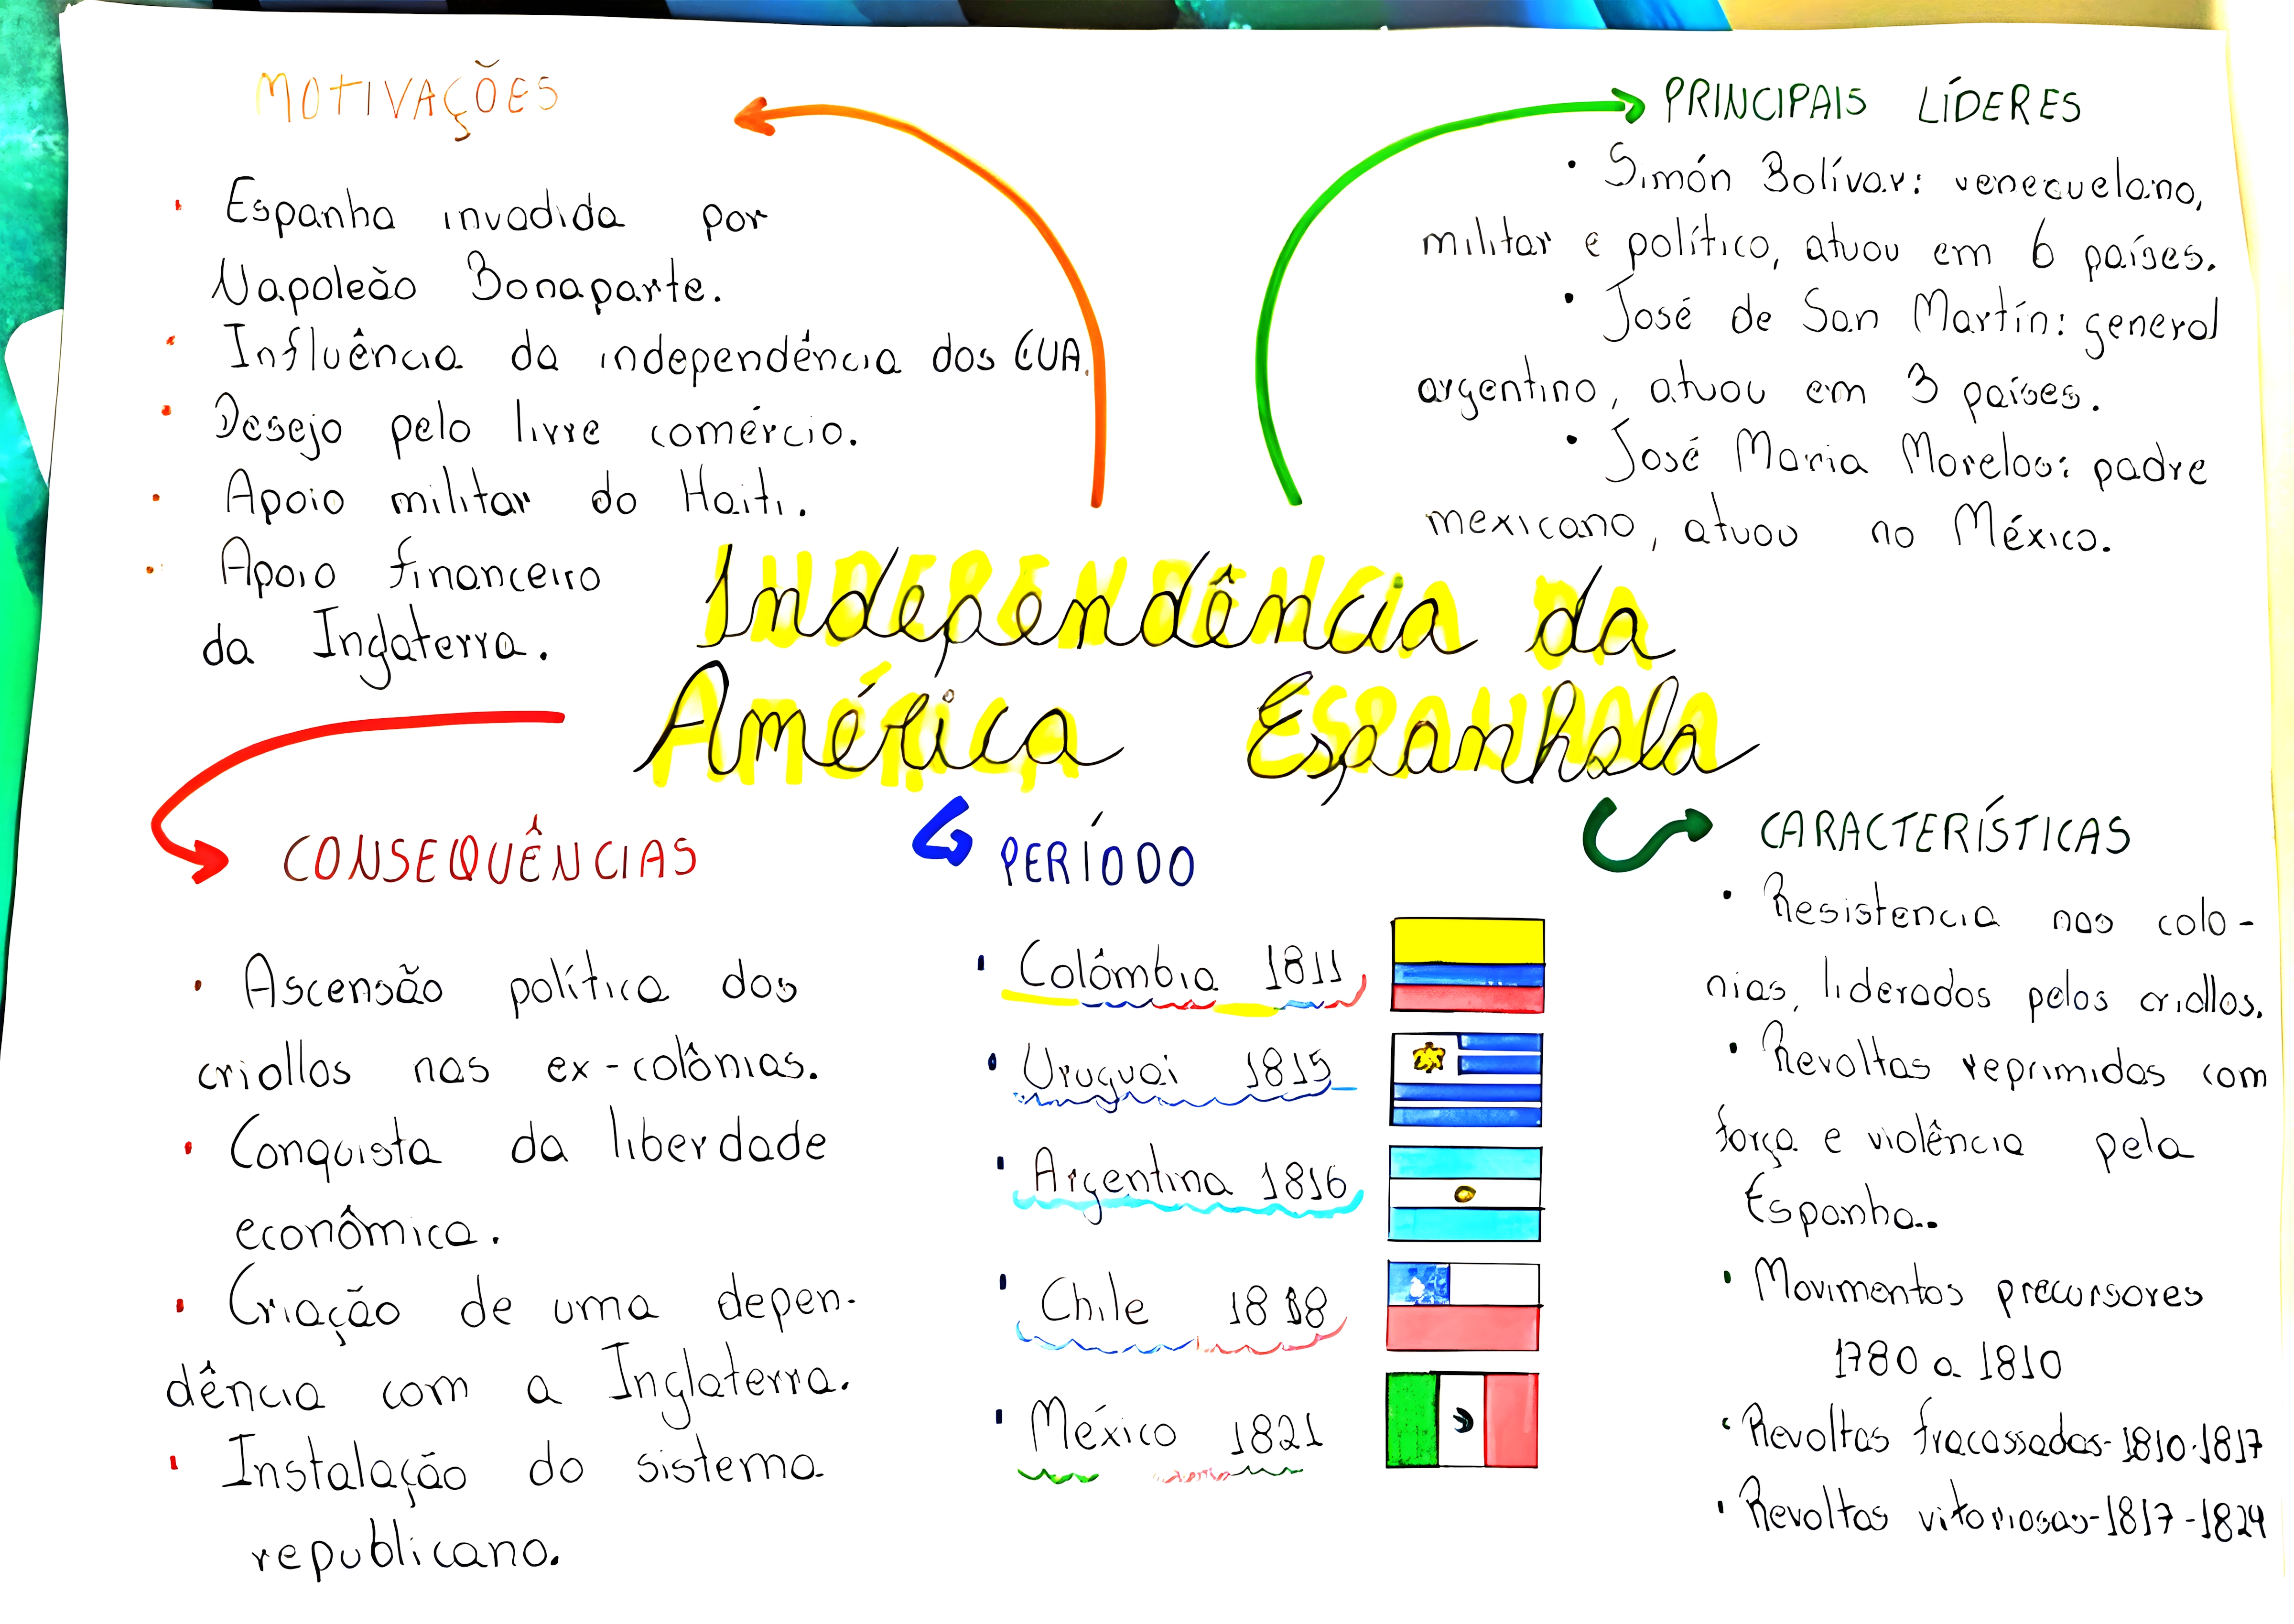 MOTIVAÇÕES
• Espanha invadida por
Napoleão Bonaparte.
• Influência da independência dos EUA.
• Desejo pelo livre comércio.
• Apoio militar do Haiti.
• Apoio financeiro
da Inglaterra.
PRINCIPAIS LÍDERES
• Simón Bolívar: venezuelano,
militar e político, atuou em 6 países.
• José de San Martín: general
argentino, atuou em 3 países.
• José Maria Morelos: padre
mexicano, atuou no México.
Independência da
América Espanhola
CONSEQUÊNCIAS
• Ascensão política dos
criollos nas ex-colônias.
• Conquista da liberdade
econômica.
• Criação de uma depen-
dência com a Inglaterra.
• Instalação do sistema
republicano.
PERÍODO
• Colômbia 1811
• Uruguai 1815
• Argentina 1816
• Chile 1818
• México 1821
CARACTERÍSTICAS
• Resistencia nas colo-
nias, liderados pelos criollos.
• Revoltas reprimidas com
força e violência pela
Espanha..
• Movimentos precursores
1780 a 1810
• Revoltas fracassadas-1810-1817
• Revoltas vitoriosas-1817-1824